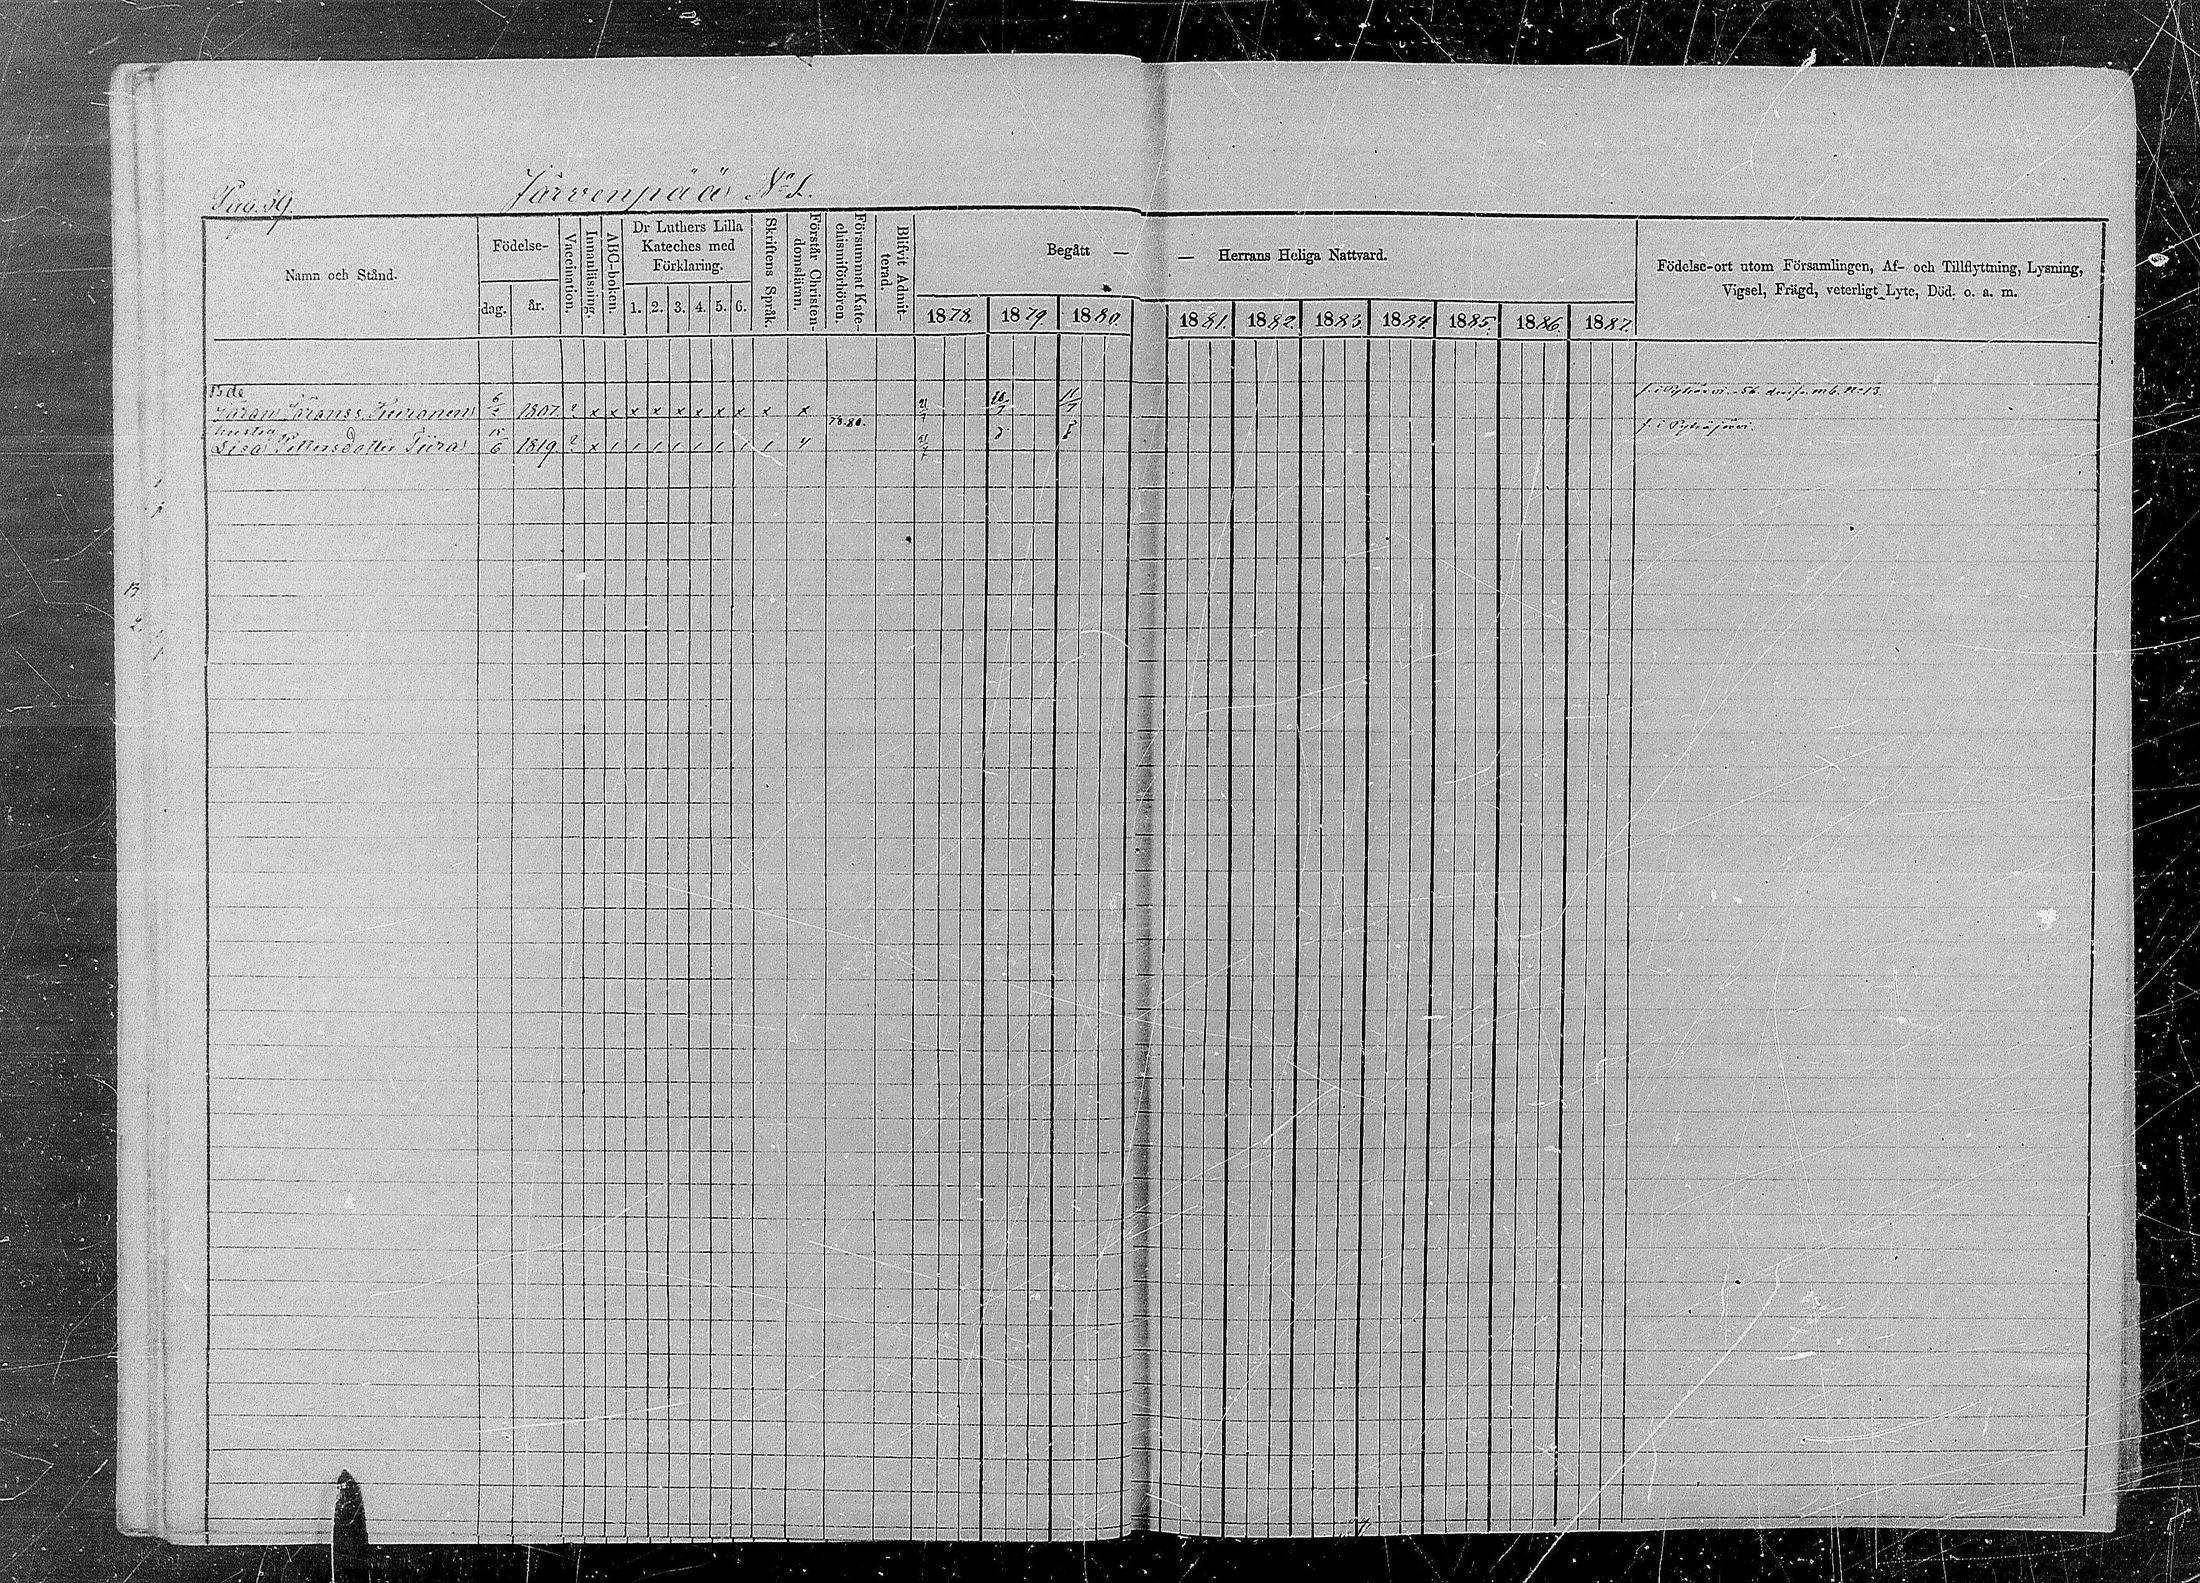 Pag. 39.
Järvenpää No 1.
Namn och Stånd.
Födelse-
dag.
år.
Vaccination.
Innanläsning.
ABC-boken.
Dr Luthers Lilla
Kateches med
Förklaring.
1. 2. 3. 4. 5. 6.
Skriftens Språk.
Förstår Christen-
domsläran.
Försummat Kate-
chismiförhören.
Blifvit Admit-
terad.
Begått —
— Herrans Heliga Nattvard.
1878. 1879. 1880. 1881. 1882. 1883. 1884. 1885. 1886. 1887.
Födelse-ort utom Församlingen, Af- och Tillflyttning, Lysning,
Vigsel, Frägd, veterligt Lyte, Död. o. a. m.
Bde
Göran Göranss 6/2 1807. ? x x x x x x x x x x 11/7
78.80.
hustru
Lisa Pettersdotter Tiira 15/6 1819. ? x / / / / / / / / "
f. i Pyhäjärvi.